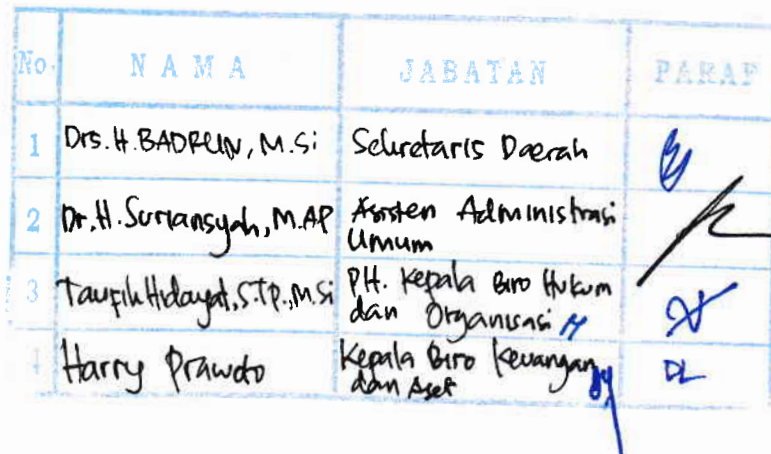 No. N A M A JABATAN PARAF
1 Drs. H. BADRUN, M.Si Sekretaris Daerah
2 Dr. H. Suriansyah, M.AP Asisten Administrasi
Umum
3 Taufik Hidayat, S.TP., M.Si PH. Kepala Biro Hukum
dan Organisasi
4 Harry Prawoto Kepala Biro Keuangan
dan Aset DL